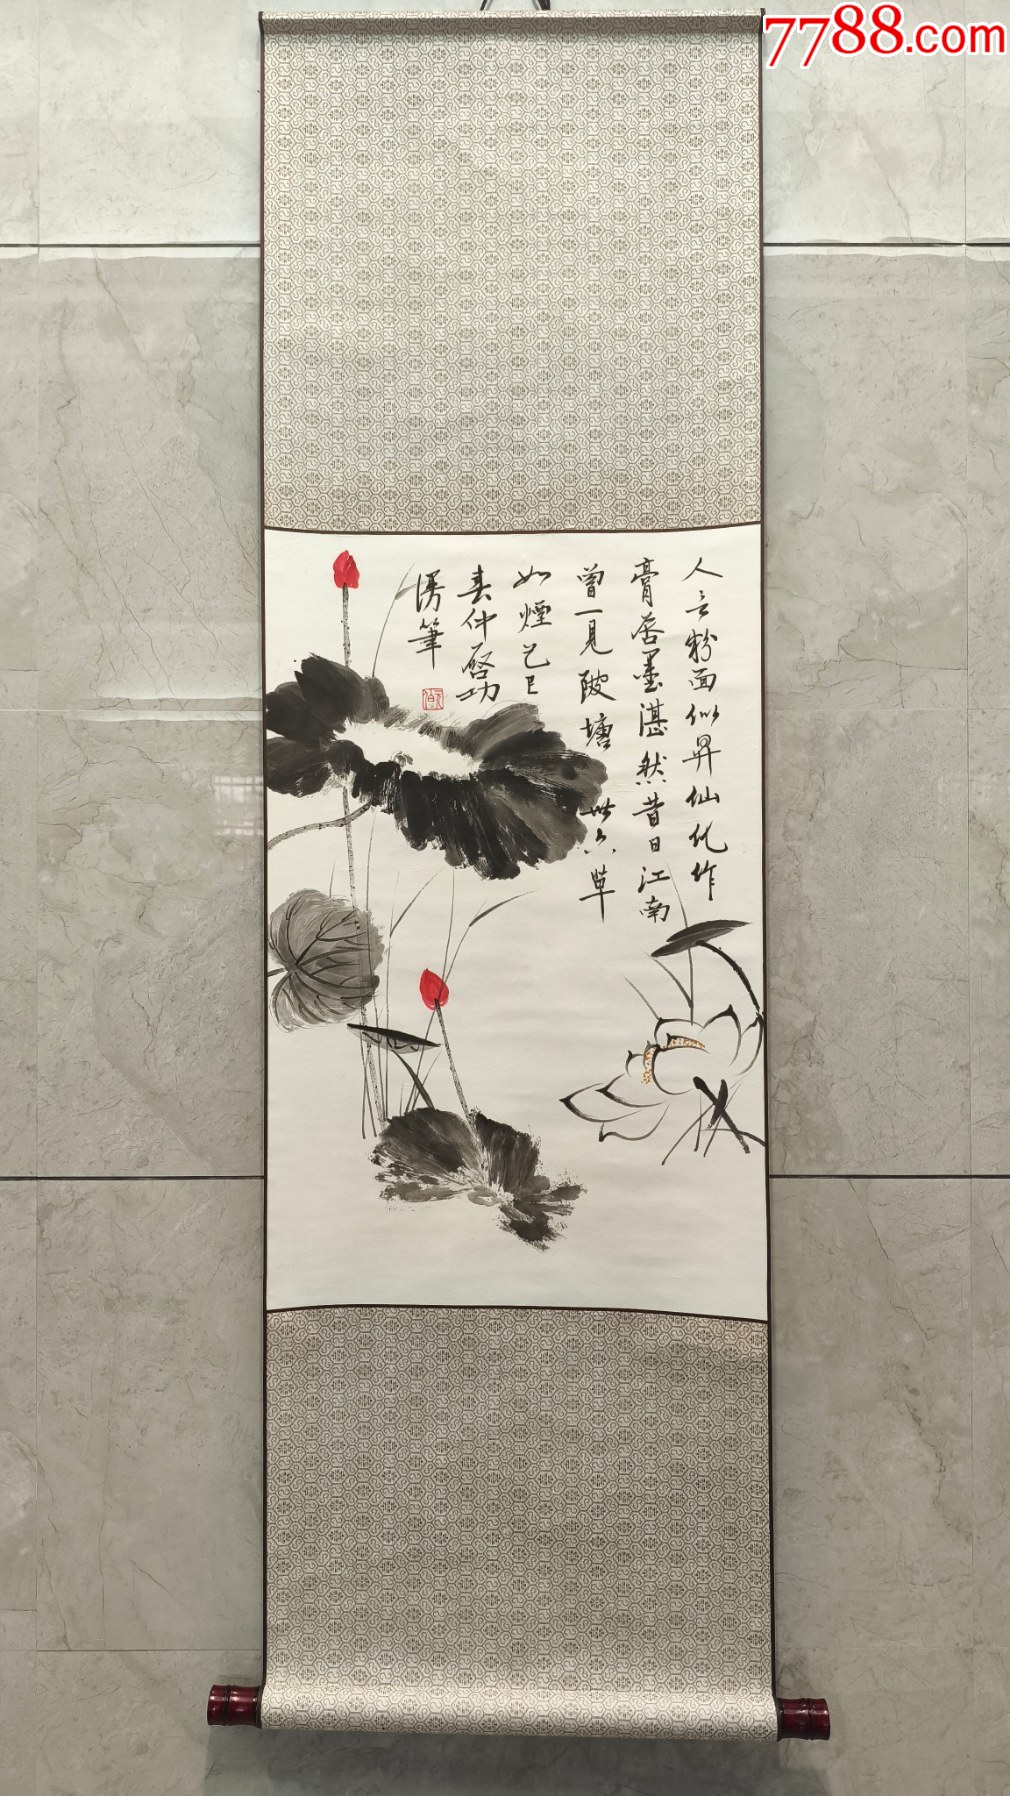 7788.com
人言粉面似昇仙化作
膏唇墨湛然昔日江南
曾一見陂塘世六草
如煙己巳
春仲啓功
漫筆